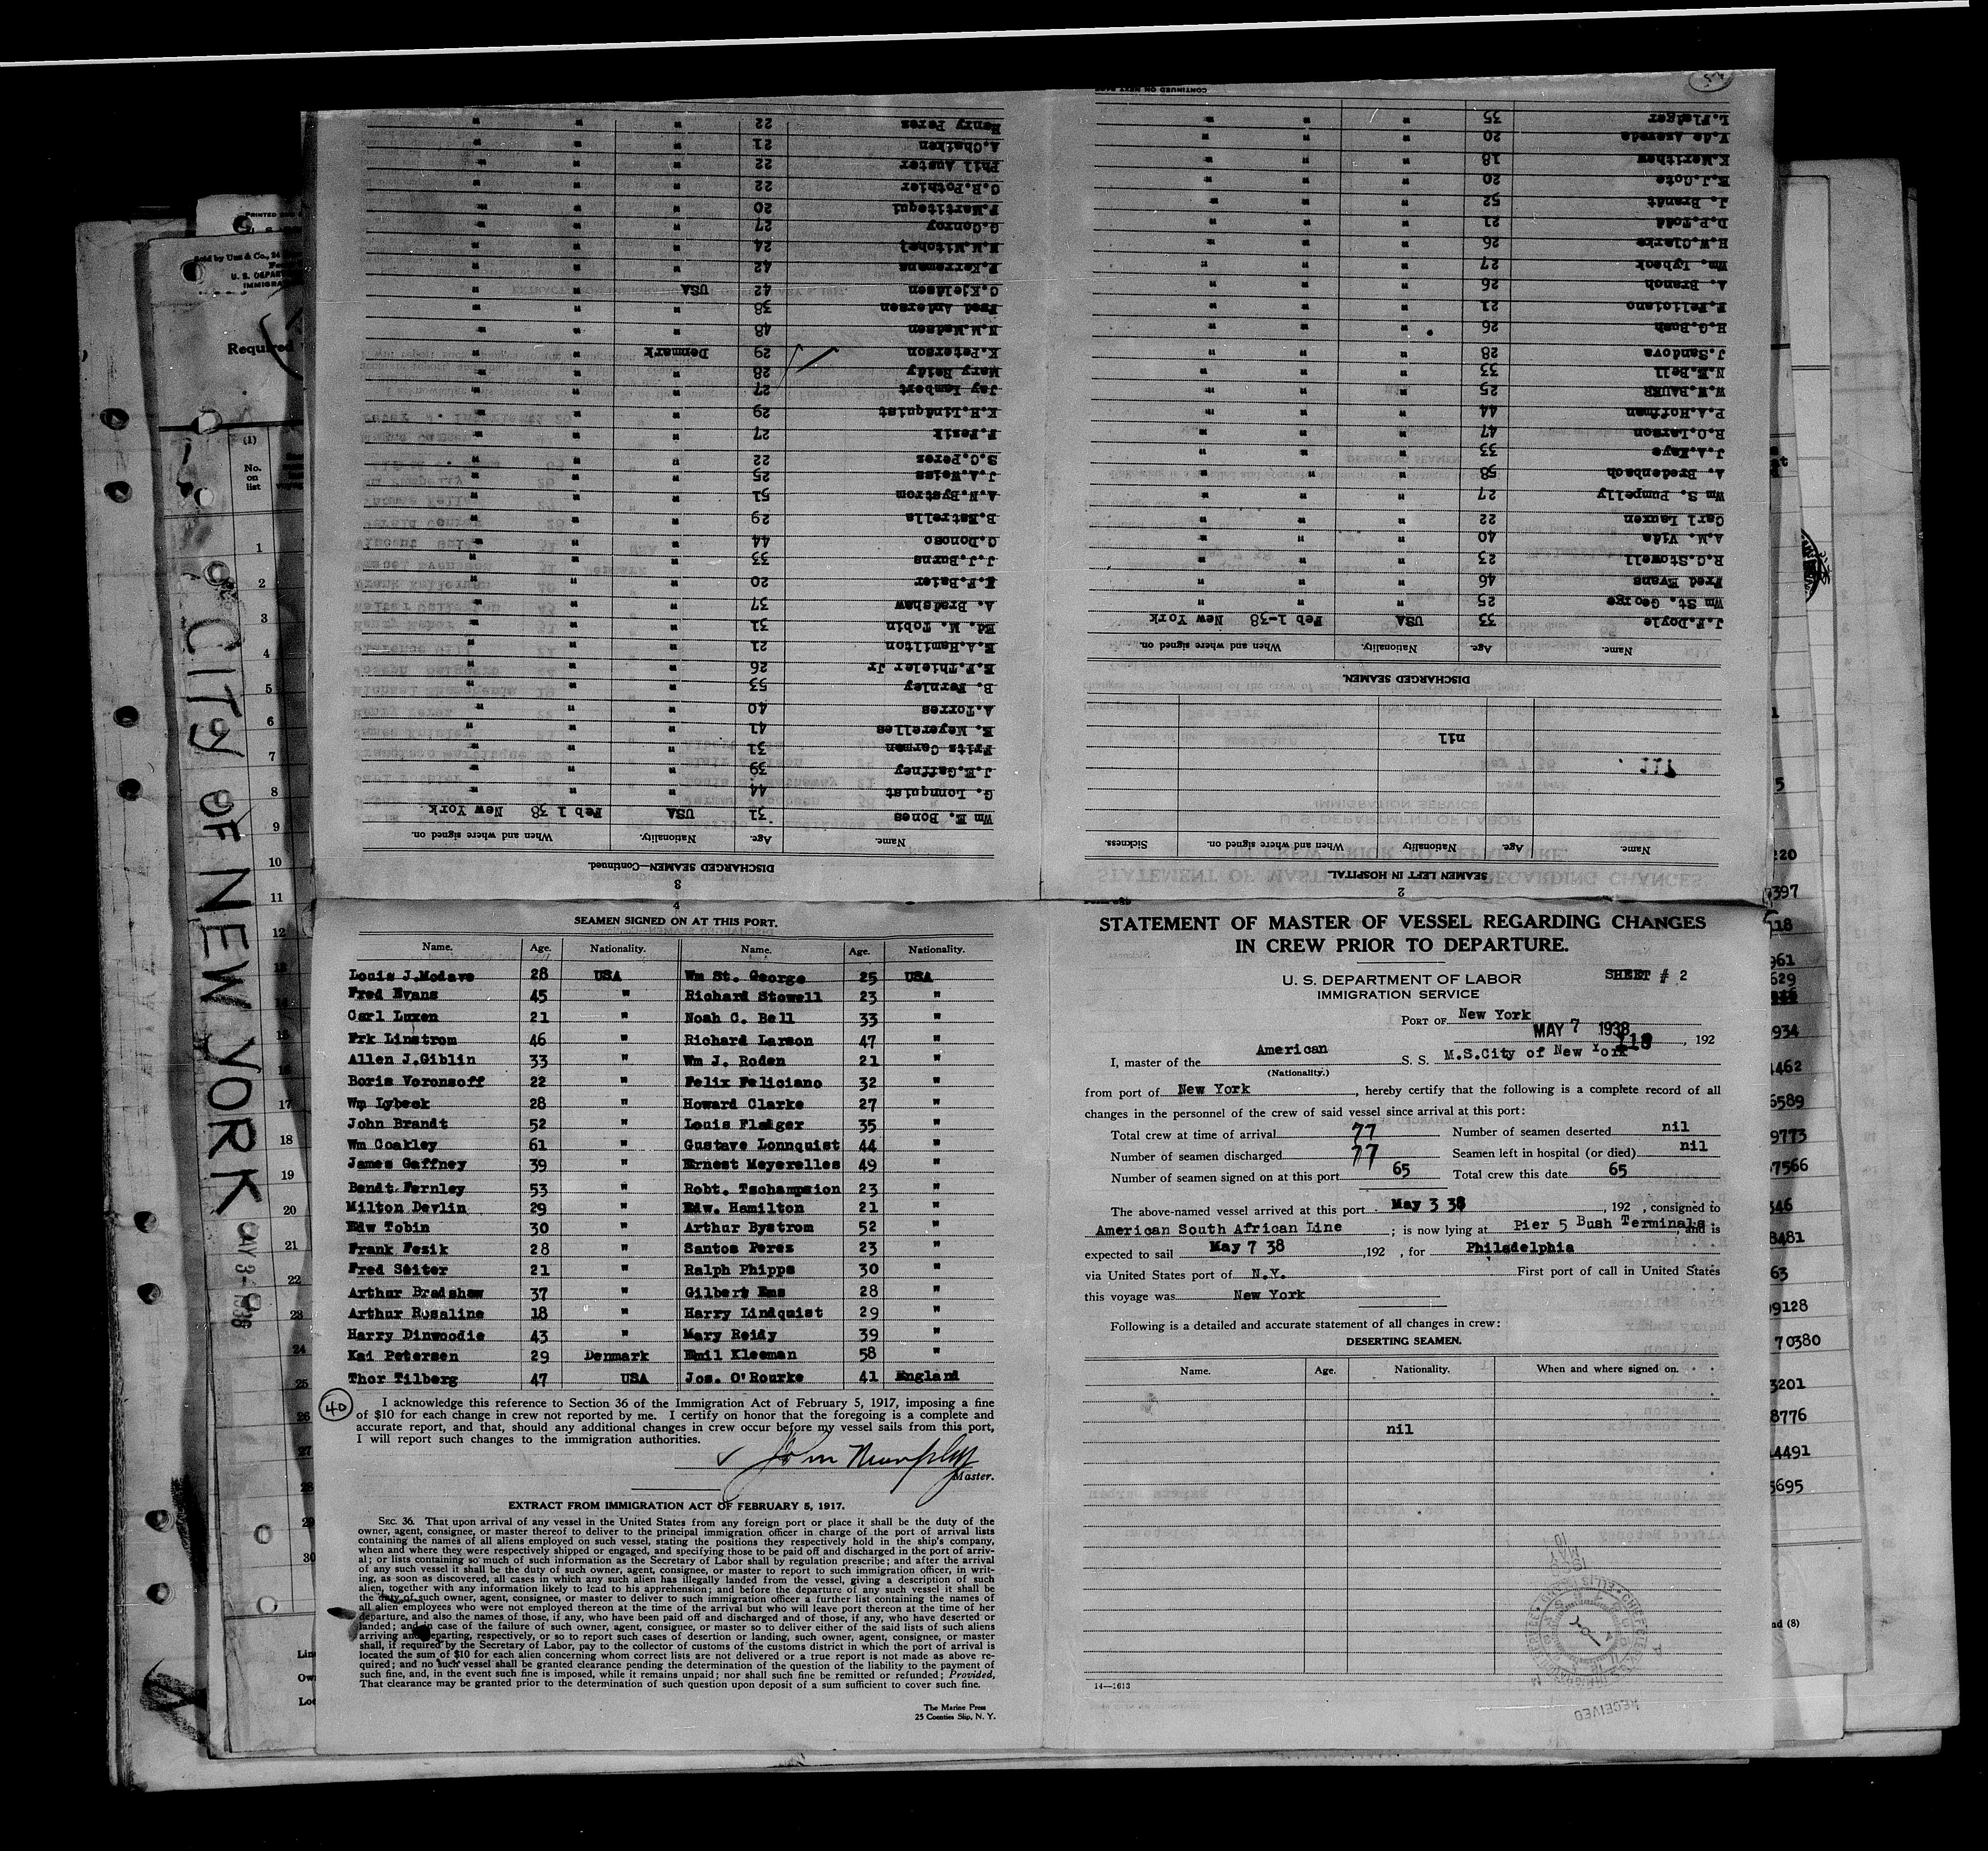 STATEMENT OF MASTER OF VESSEL REGARDING CHANGES
IN CREW PRIOR TO DEPARTURE.
U. S. DEPARTMENT OF LABOR SHEET # 2
IMMIGRATION SERVICE
PORT OF New York
MAY 7 1938 118, 192
I, master of the American S. S. M.S.City of New York
(Nationality.)
from port of New York, hereby certify that the following is a complete record of all
changes in the personnel of the crew of said vessel since arrival at this port:
Total crew at time of arrival 77 Number of seamen deserted nil
Number of seamen discharged 77 Seamen left in hospital (or died) nil
Number of seamen signed on at this port 65 Total crew this date 65
The above-named vessel arrived at this port May 3 38, 192 , consigned to
American South African Line ; is now lying at Pier 5 Bush Terminals, and is
expected to sail May 7 38, 192 , for Philadelphia
via United States port of N.Y. First port of call in United States
this voyage was New York
Following is a detailed and accurate statement of all changes in crew:
DESERTING SEAMEN.
Name. Age. Nationality. When and where signed on.
nil
14—1613
RECEIVED
2
SEAMEN LEFT IN HOSPITAL.
Name. Age. Nationality When and where signed on. Sickness.
nil
DISCHARGED SEAMEN.
Name. Age. Nationality. When and where signed on.
J.F.Doyle 33 USA Feb 1-38 New York
Wm St. George 25 " " "
Fred Evans 46 " " "
R.C.Stowell 23 " " "
A.M. Vida 40 " " "
Carl Lauxen 22 " " "
Wm S. Pumpelly 27 " " "
A. Bredenbach 58 " " "
J.A.Kaye 33 " " "
R.O.Larson 47 " " "
P.A.Hoffman 44 " " "
W.W.BAUER 25 " " "
N.E.Bell 33 " " "
J.Sandova 28 " " "
H.G.Bush 26 " " "
F.Feliciano 21 " " "
A. Branch 26 " " "
Wm. Lybeck 27 " " "
H.W.Clarke 26 " " "
D.P.Todd 21 " " "
J. Brandt 52 " " "
E.J.Cote 20 " " "
K.Merithew 18 " " "
V.de Azevedo 20 " " "
L.Flaiger 35 " " "
CONTINUED ON NEXT PAGE
3
DISCHARGED SEAMEN—Continued.
Name. Age. Nationality. When and where signed on.
Wm E. Bones 31 USA Feb 1 38 New York
G. Lonnquist 44 " " "
J.E.Gaffney 39 " " "
Fritz Carman 31 " " "
E. Meyerelles 41 " " "
A.Torres 40 " " "
B. Fernley 53 " " "
E.F.Thieler Jr 26 " " "
E.A.Hamilton 21 " " "
Ed. M. Tobin 31 " " "
A. Bradshaw 37 " " "
E.F.Baier 20 " " "
J.J.Burns 33 " " "
C.Donoso 44 " " "
B.Estrella 29 " " "
A.N.Bystrom 51 " " "
J.A.Weiss 25 " " "
S.C.Peres 22 " " "
F.Fesik 27 " " "
K.H.Lindquist 29 " " "
Jay Lambert 27 " " "
Mary Reidy 28 " " "
K.Peterson 29 Denmark " "
N.M.Madsen 48 " " "
Fred Andersen 38 " "
C.Kjeldsen 42 USA " "
F.Kerremans 42 " " "
N.M.Mitchel 24 " " "
G.Conroy 27 " " "
F.Martitequi 20 " " "
C.B.Pothier 22 " " "
Phil Auster 22 " " "
A.Chaiken 21 " " "
Henry Peres 22 " " "
4
SEAMEN SIGNED ON AT THIS PORT.
Name. Age. Nationality. Name. Age. Nationality.
Louis J.Modave 28 USA Wm St. George 25 USA
Fred Evans 45 " Richard Stowell 23 "
Carl Luxen 21 " Noah C. Bell 33 "
Frk Linstrom 46 " Richard Larson 47 "
Allen J.Giblin 33 " Wm J. Roden 21 "
Boris Voronsoff 22 " Felix Feliciano 32 "
Wm Lybeck 28 " Howard Clarke 27 "
John Brandt 52 " Louis Flaiger 35 "
Wm Coakley 61 " Gustave Lonnquist 44 "
James Gaffney 39 " Ernest Meyerelles 49 "
Bendt Fernley 53 " Robt. Tschampsion 23 "
Milton Devlin 29 " Edw. Hamilton 21 "
Edw Tobin 30 " Arthur Bystrom 52 "
Frank Fesik 28 " Santos Peres 23 "
Fred Seiter 21 " Ralph Phipps 30 "
Arthur Bradshaw 37 " Gilbert Ens 28 "
Arthur Rosaline 18 " Harry Lindquist 29 "
Harry Dinwoodie 43 " Mary Reidy 39 "
Kai Petersen 29 Denmark Emil Kleeman 58 "
Thor Tilberg 47 USA Jos. O'Rourke 41 England
40
I acknowledge this reference to Section 36 of the Immigration Act of February 5, 1917, imposing a fine
of $10 for each change in crew not reported by me. I certify on honor that the foregoing is a complete and
accurate report, and that, should any additional changes in crew occur before my vessel sails from this port,
I will report such changes to the immigration authorities.
John Murphy
Master.
EXTRACT FROM IMMIGRATION ACT OF FEBRUARY 5, 1917.
SEC. 36. That upon arrival of any vessel in the United States from any foreign port or place it shall be the duty of the
owner, agent, consignee, or master thereof to deliver to the principal immigration officer in charge of the port of arrival lists
containing the names of all aliens employed on such vessel, stating the positions they respectively hold in the ship's company,
when and where they were respectively shipped or engaged, and specifying those to be paid off and discharged in the port of arriv-
al; or lists containing so much of such information as the Secretary of Labor shall by regulation prescribe; and after the arrival
of any such vessel it shall be the duty of such owner, agent, consignee, or master to report to such immigration officer, in writ-
ing, as soon as discovered, all cases in which any such alien has illegally landed from the vessel, giving a description of such
alien, together with any information likely to lead to his apprehension; and before the departure of any such vessel it shall be
the duty of such owner, agent, consignee, or master to deliver to such immigration officer a further list containing the names of
all alien employees who were not employed thereon at the time of the arrival but who will leave port thereon at the time of her
departure, and also the names of those, if any, who have been paid off and discharged and of those, if any, who have deserted or
landed; and in case of the failure of such owner, agent, consignee, or master so to deliver either of the said lists of such aliens
arriving and departing, respectively, or so to report such cases of desertion or landing, such owner, agent, consignee, or master
shall, if required by the Secretary of Labor, pay to the collector of customs of the customs district in which the port of arrival is
located the sum of $10 for each alien concerning whom correct lists are not delivered or a true report is not made as above re-
quired; and no such vessel shall be granted clearance pending the determination of the question of the liability to the payment of
such fine, and, in the event such fine is imposed, while it remains unpaid; nor shall such fine be remitted or refunded; Provided,
That clearance may be granted prior to the determination of such question upon deposit of a sum sufficient to cover such fine.
The Marine Press
25 Coenties Slip, N. Y.
CITY OF NEW YORK
MAY 3- 1938
Required
(1)
No.
on
list
1
2
3
4
5
6
7
8
9
10
11
12
13
14
15
16
17
18
19
20
21
22
23
24
25
26
27
28
29
30